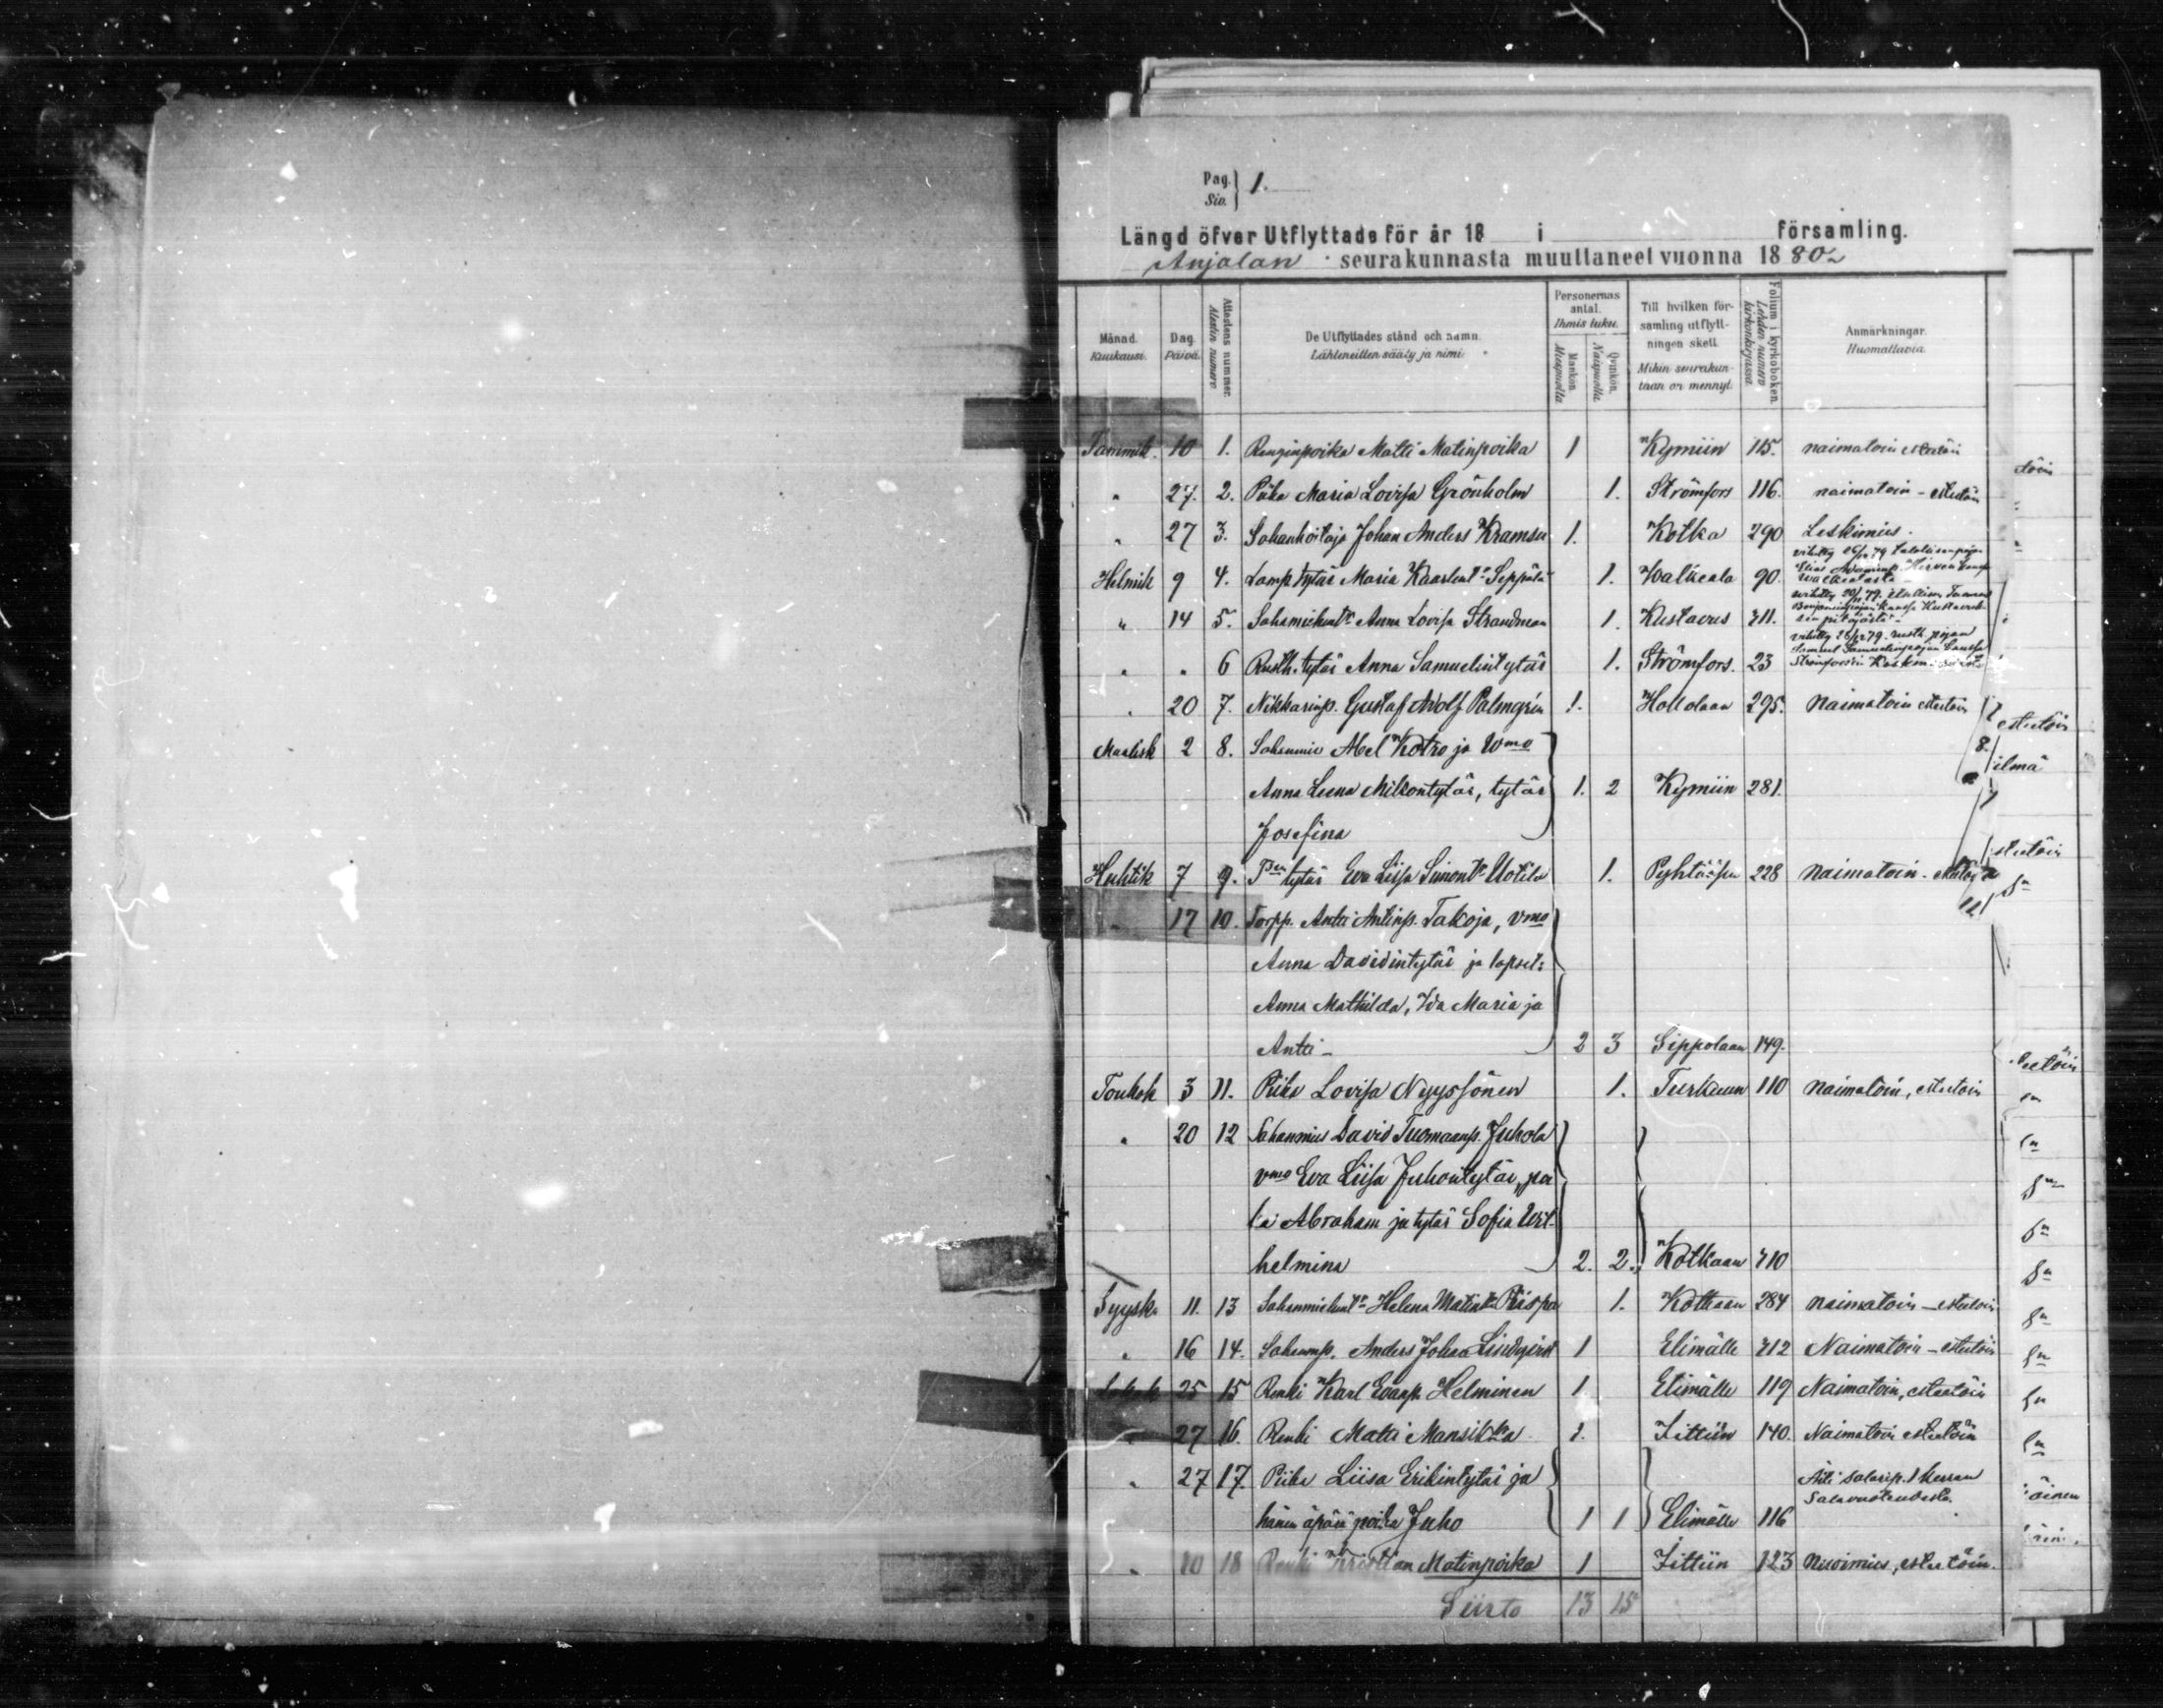 Pag. Siv. } 1.
Längd öfver Utflyttade för år 18 i församling.
Anjalan seurakunnasta muuttaneet vuonna 1880
Månad. Kuukausi. Dag. Päivä. Attestens nummer. Atestin numero De Utflyttades stånd och namn. Lähteneitten sääty ja nimi. Personernas antal. Ihmis luku. Mankön. Miespuolta. Qvinkön. Naispuolta. Till hvilken församling utflyttningen skett. Mihin seurakuntaan on mennyt. Folium i kyrkoboken. Lehden numero kirkonkirjassa. Anmärkningar. Huomattavia.
Tammik. 10 1. Renginpoika Matti Matinpoika 1 Kymiin 115. naimatoin esteetöin
" 27. 2. Piika Maria Lovisa Grönholm 1. Strömfors 116. naimatoin - esteetöin
" 27 3. Sahanhoitaja Johan Anders Kramsu 1. Kotka 290 Leskimies.
Helmik 9 4. Lamp. tytär Maria Kaarlent. Seppälä 1. Walkeala 90.
" 14 5. Sahamiehent. Anna Lovisa Strandman 1. Kustavus 311.
" " 6 Rusth. tytär Anna Samuelintytär 1. Strömfors. 23
" 20 7. Nikkarinp. Gustaf Adolf Palmgrén 1. Hollolaan 295. Naimatoin esteetöin
Maalisk 2 8. Sahanmies Abel Kotro ja Wmo
Anna Leena Mikontytär, tytär 1. 2 Kymiin 281.
Josefina
Huhtik 7 9. tytär Eva Lisa Simont. Uotila 1. Pyhtääsen 228 naimatoin - esteetöin
" 17 10. Torpp. Antti Antinp. Takoja, vmo
Anna Davidintytär ja lapset:
Anna Mathilda, Ida Maria ja
Antti - 2 3 Sippolaan 149.
Toukok 3 11. Piika Lovisa Nyyssönen 1. Turkuun 110 naimatoin, esteetöin
" 20 12 Sahanmies David Tuomaanp. Juhola
vmo Eva Liisa Juhontytär, poi
ka Abraham ja tytär Sofia Wil-
helmina 2. 2. Kotkaan 310
Syysk. 11. 13 Sahanmiehent. Helena Matint. Räspä 1. Kotkaan 284 naimatoin - esteetöin
" 16 14. Sahamp. Anders Johan Lindqvist 1 Elimälle 312 Naimatoin - esteetöin
25 15 Renki Karl Evanp. Helminen 1 Elimälle 119 Naimatoin, esteetöin
" 27 16. Renki Matti Mansikka 1. Iittiin 140. Naimatoin esteetöin
" 27 17. Piika Liisa Erikintytär ja Äiti salavuoteudesta.
hänen äpärä poika Juho 1 1 Elimälle 116
" 20 18 Renki Kristian Matinpoika 1 Iittiin 123 Nuorimies, esteetöin.
Siirto 13 15